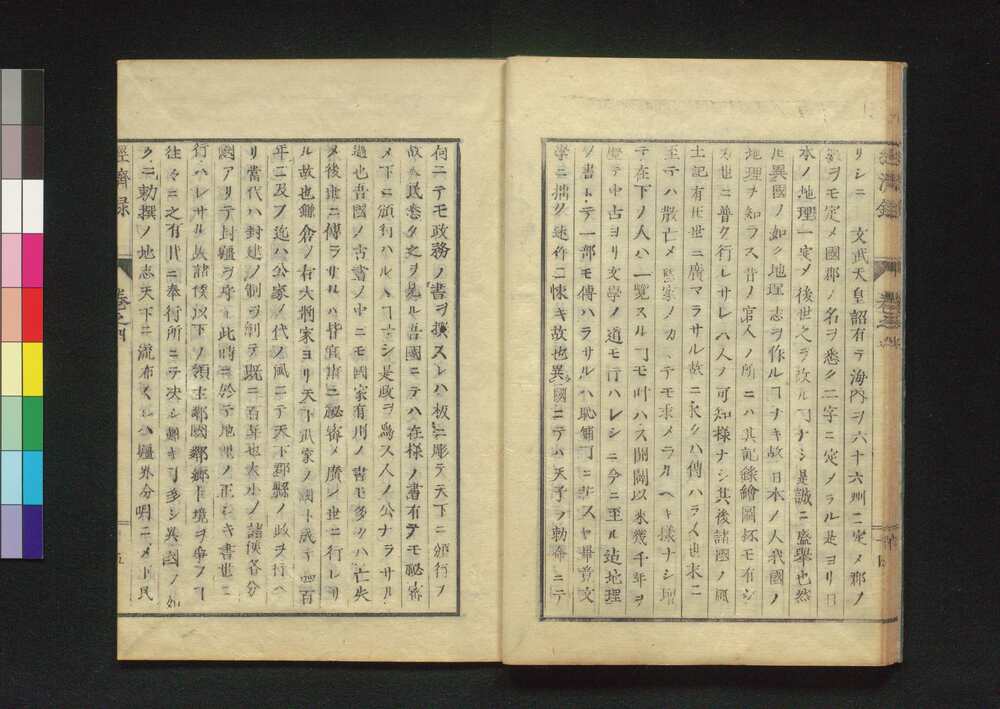 リシニ 文武天皇詔有テ海内ヲ六十六州ニ定メ郡ノ
數ヲモ定メ國郡ノ名ヲ悉ク二字ニ定メラル是ヨリ日
本ノ地理一定メ後世之ヲ改ルヿナシ是誠ニ盛擧也然
異國ノ如ク地理志ヲ作ルヿナキ故日本ノ人我國ノ
地理ヲ知ラス昔ノ官人ノ所ニハ其記錄繪圖抔モ有シ
世ニ普ク行レサレハ人ノ可知様ナシ其後諸國ノ風
土記有圧世ニ廣マラサル故ニ永クハ傳ハラス也末ニ
至テハ散亡メ テモ求メラルヘキ様ナシ
テ在下ノ人ハ一覽スルヿモ叶ハス開闢以來幾千年ヲ
歷テ中古ヨリ文學ノ道モ行ハレシニ今ニ至ル迠地理
ノ書トテ一部モ傳ハラサルハ恥 ヿニ非スヤ畢竟文
學ニ拙ク述作ニ懶キ故也異國ニテハ天子ノ勅命ニテ
何ニテモ政務ノ書ヲ撰スレハ板ニ彫テ天下ニ頒行ノ
故人民悉ク之ヲ見ル吾國ニテハ在様ノ書有テモ秘密
メ下ニ頒行ハルヽヿナシ是政ヲ爲ス人ノ公ナラサル
過也吾國ノ古書ノ中ニモ國家有用ノ書モ多クハ亡失
メ後世ニ傳ラサルハ皆官府ニ秘密メ廣ク世ニ行レサ
ル故也鎌倉ノ右大將家ヨリ天下武家ノ 四百
年ニ及フ迠ハ公家ノ代ノ風ニテ天下郡縣ノ政ヲ行ヘ
リ當代ハ封建ノ制ヲ創テ既ニ百年也大小ノ諸侯各分
國アリテ封疆ヲ守ル此時ニ於テ地理ノ正シキ書世ニ
行ハレサル故諸侯以下ノ領主鄰國鄰鄉ト境ヲ爭フヿ
往々ニ之有 奉行所ニテ決シ難キヿ多シ異國ノ如
ク 勅撰ノ地志天下ニ流布 ハ疆界分明ニメ下民
經濟録
卷之四
五